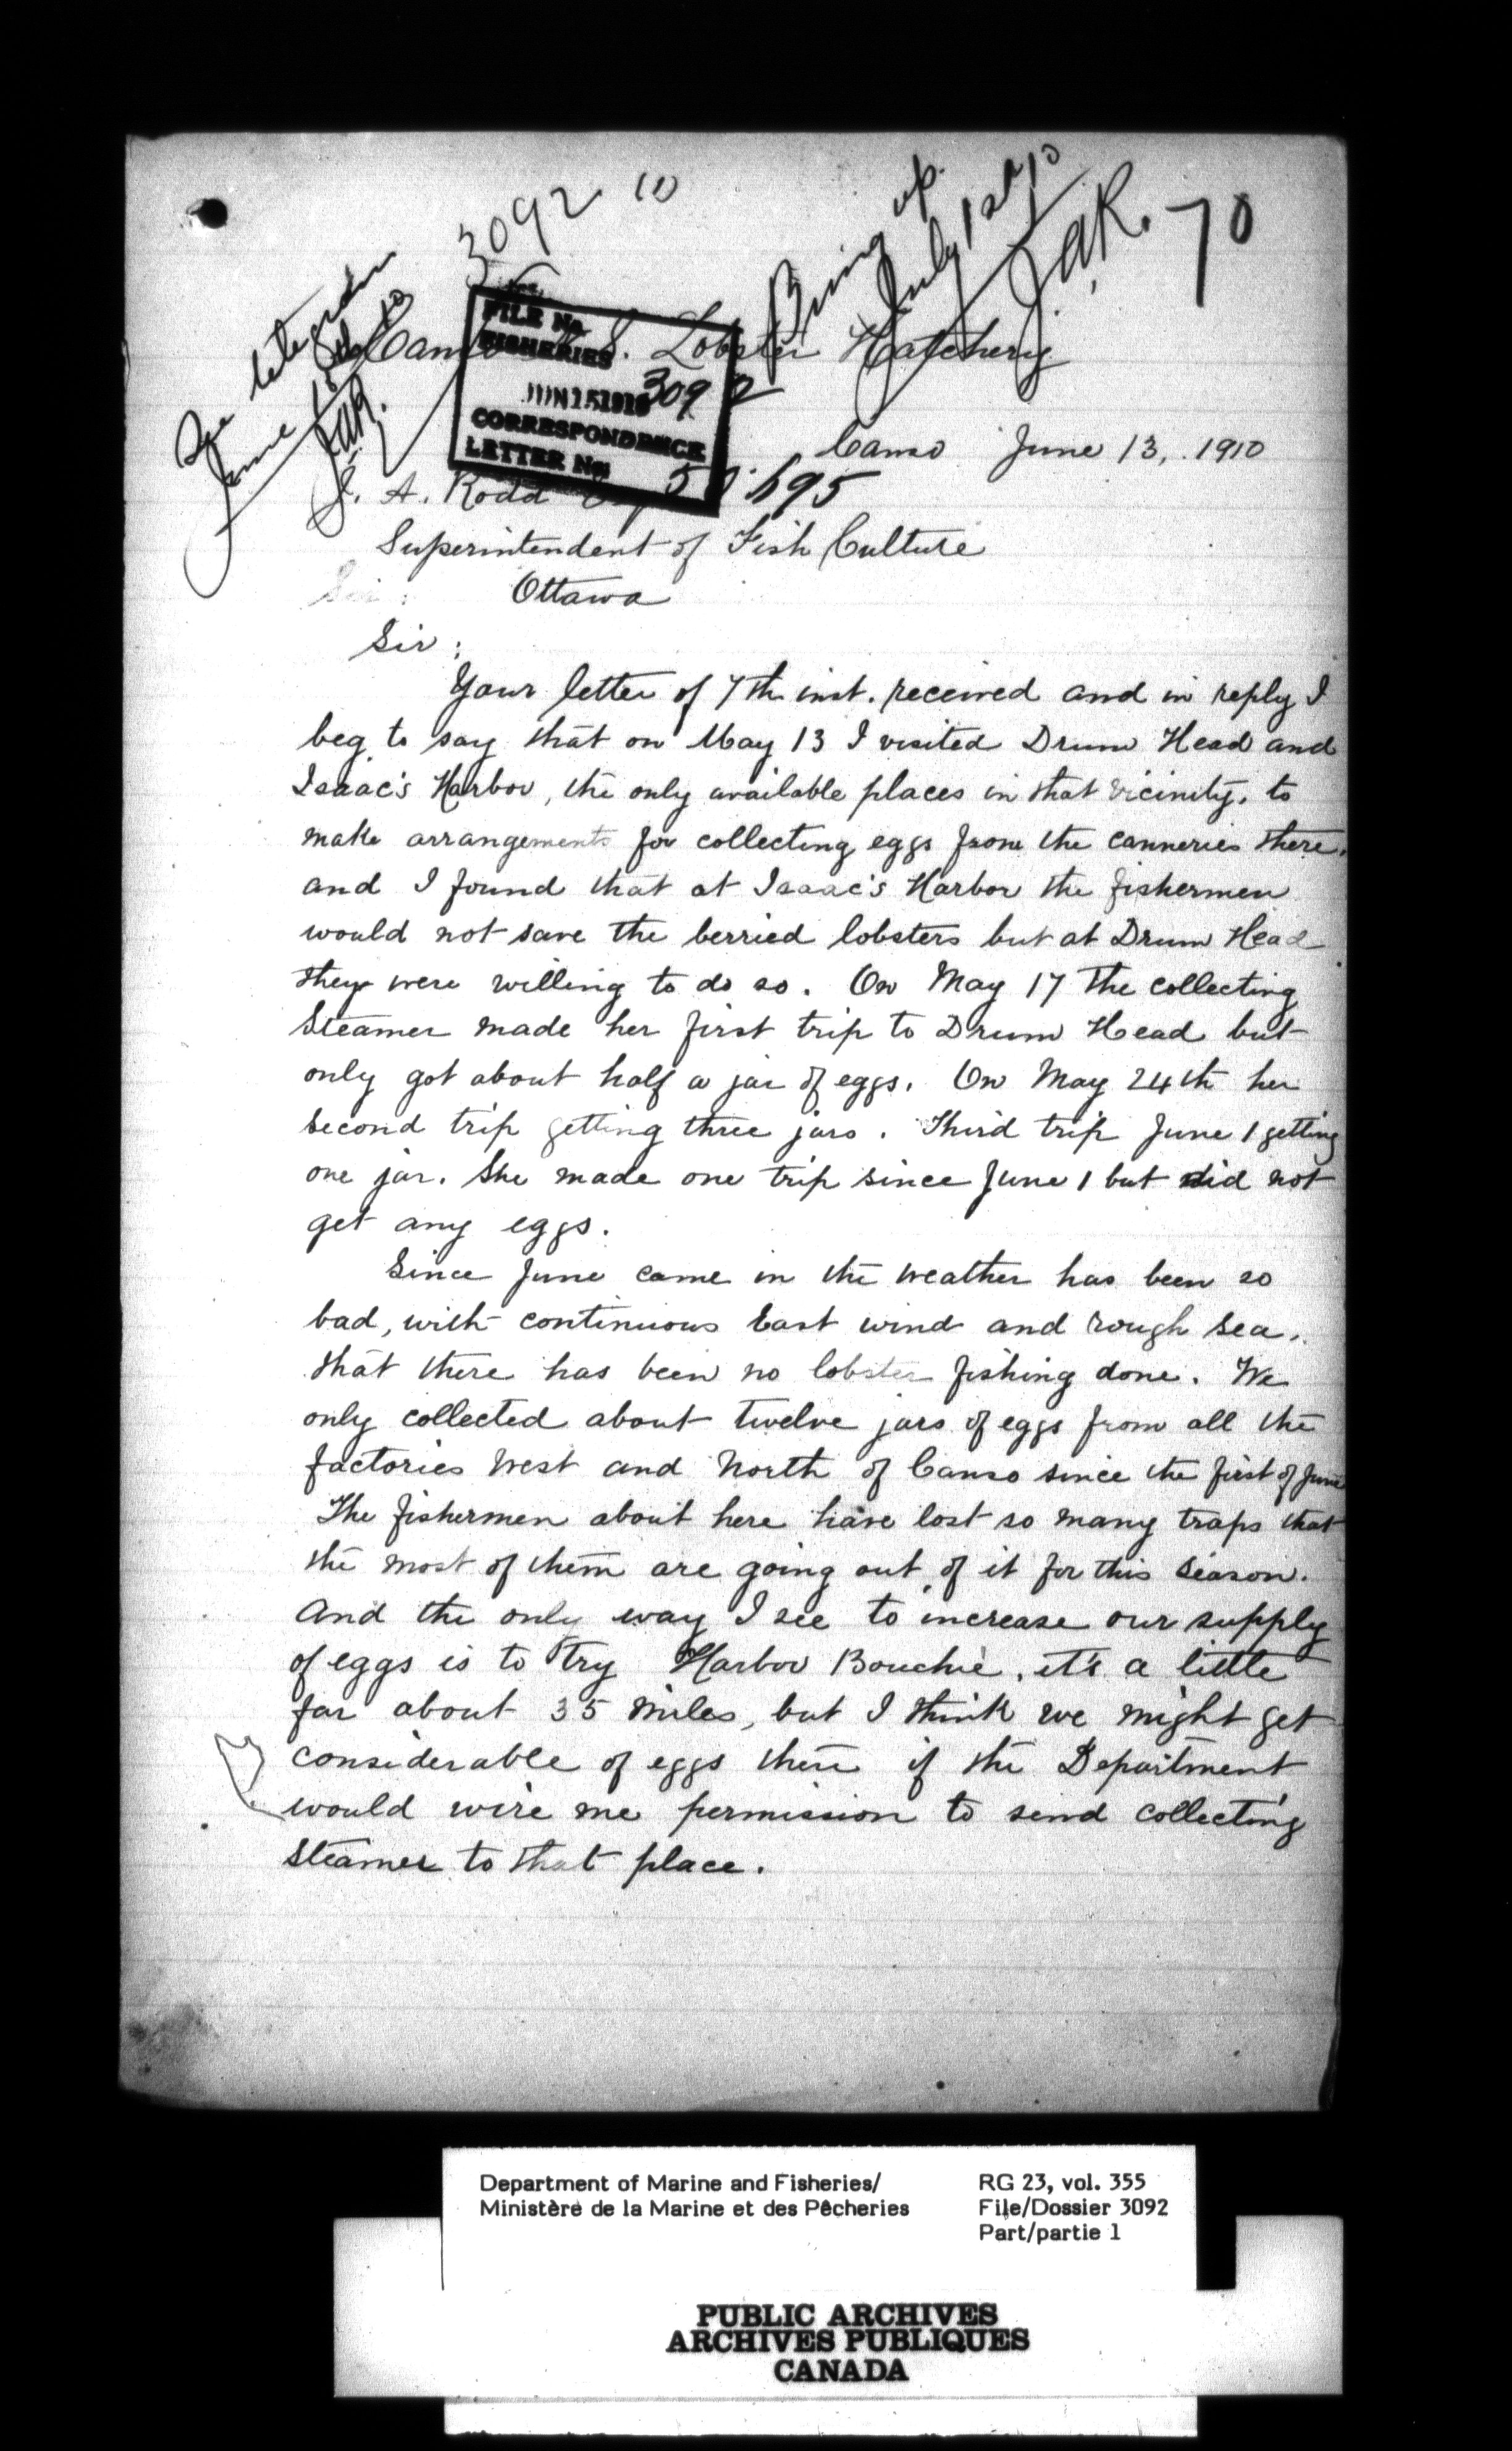 3092 10
Bring up.
July 1st 10
J.A.R.
70
See telegram
June 15th 10
J.A.R.
FILE No.
FISHERIES
JUN 15 1910 3092
CORRESPONDENCE
LETTER No.
695
Canso N. S. Lobster Hatchery
Canso June 13, 1910
J. A. Rodd Esq
Superintendent of Fish Culture
Ottawa
Sir:
Your letter of 7th inst. received and in reply I
beg to say that on May 13 I visited Drum Head and
Isaac's Harbor, the only available places in that vicinity, to
make arrangements for collecting eggs from the canneries there,
and I found that at Isaac's Harbor the fishermen
would not save the berried lobsters but at Drum Head
they were willing to do so. On May 17 the collecting
Steamer made her first trip to Drum Head but
only got about half a jar of eggs. On May 24th her
second trip getting three jars. Third trip June 1 getting
one jar. She made one trip since June 1 but did not
get any eggs.
Since June came in the weather has been so
bad, with continuous East wind and rough sea,
that there has been no lobster fishing done. We
only collected about twelve jars of eggs from all the
factories West and North of Canso since the first of June
The fishermen about here have lost so many traps that
the most of them are going out of it for this season.
And the only way I see to increase our supply
of eggs is to try Harbor Bouchie, it's a little
far about 35 miles, but I think we might get
considerable of eggs there if the Department
would wire me permission to send collecting
steamer to that place.
Department of Marine and Fisheries/
Ministère de la Marine et des Pêcheries
RG 23, vol. 355
File/Dossier 3092
Part/partie 1
PUBLIC ARCHIVES
ARCHIVES PUBLIQUES
CANADA